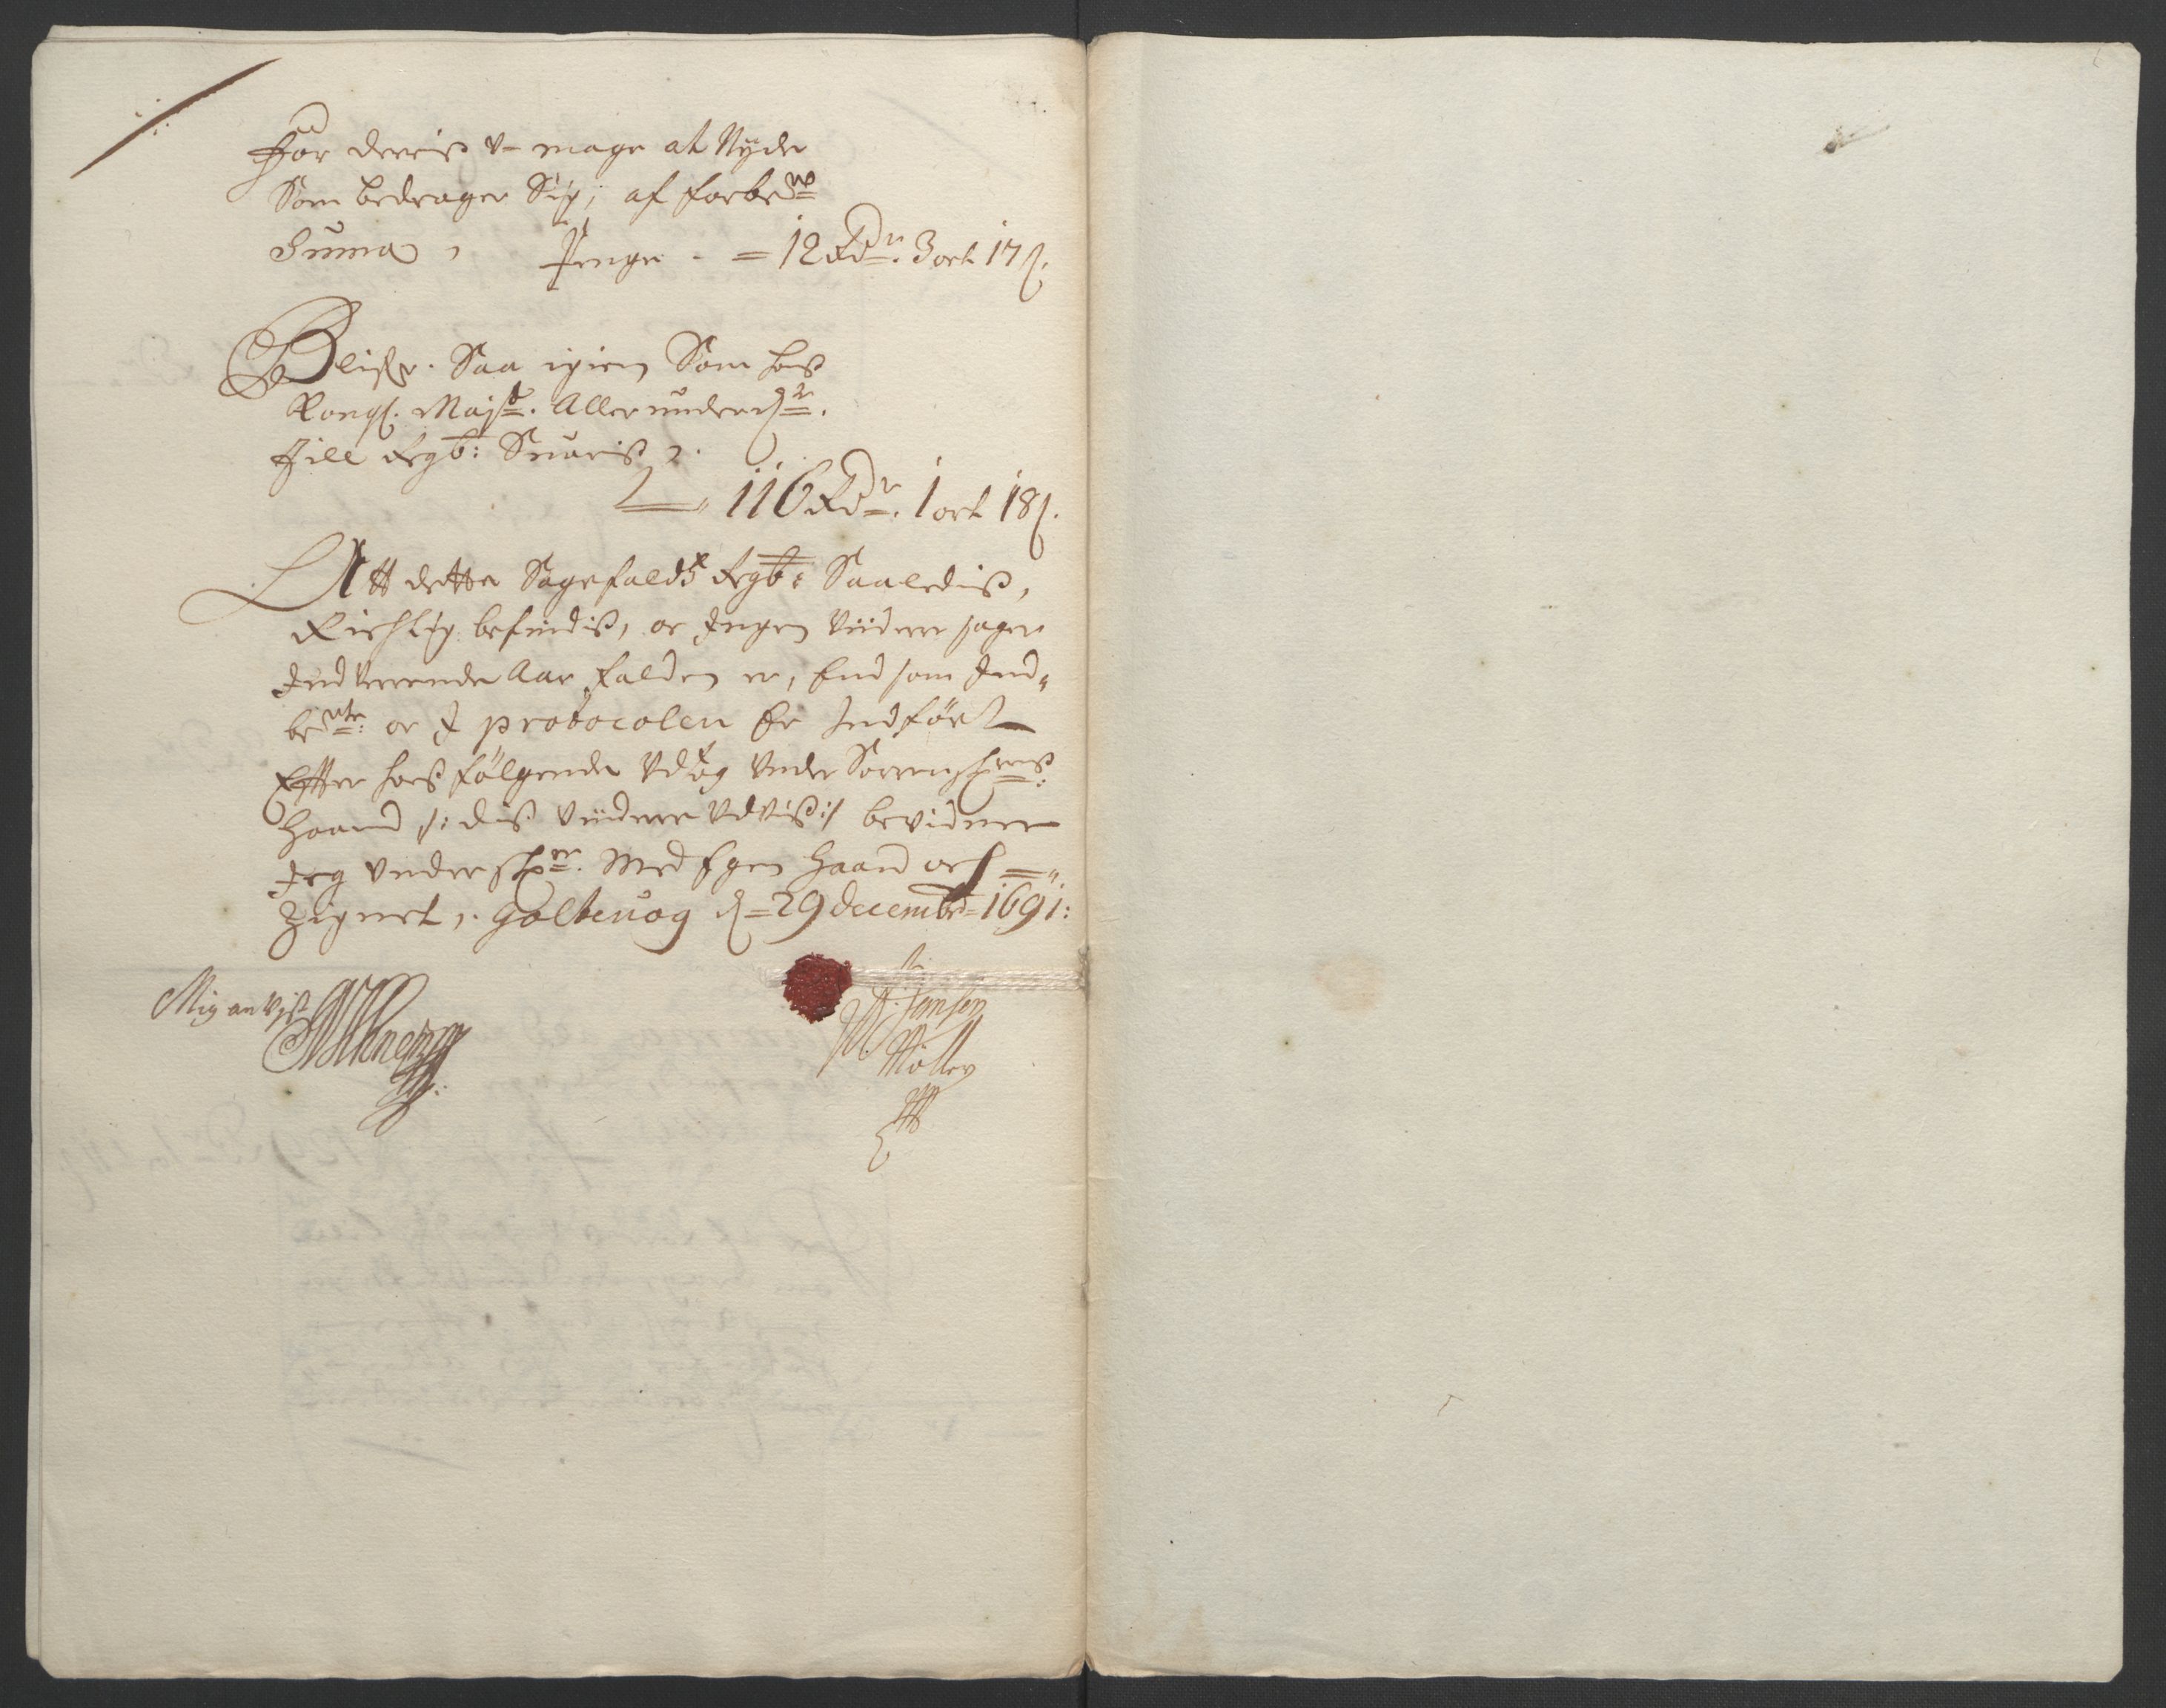 For deeris V- mage at Nyde
Som bedrager Sig, af forbete
Suma, Penge - = 12 Rdr. 3 ort 17 s.
Blifver Saa igien Som hos
Kongl. Mayst. Allerunderdr.
Till Regb: Svaris
116 Rdr. 1 ort 18 s.
Att dette Sagefalds Regb: Saaledis,
Richtig befindis, oc Ingen Viidere sager
Indverende Aar falden er, End som Ind-
bete: oc I protocolen Er Indført
Effter hosfølgende Udtog Under Sorrenschrens:
Haand /: dis Viidere Udvis:/ bevidner
Jeg Underschr. Med Egen Haand och
Zignet, Goltevog d= 29 decembr= 1691:
Mig anvist
Jensen
Møller